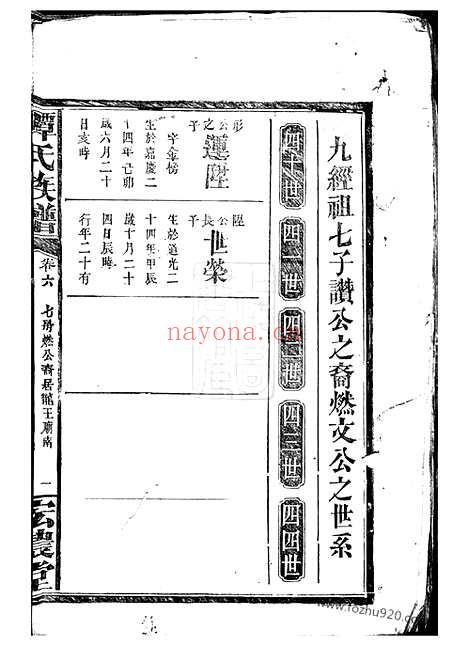 九經祖七子讚公之裔燃文公之世系
四十世
四一世
四二世
四三世
四四世
形公之子
蓮陞
字金榜
生於嘉慶二
十四年己卯
歲六月二十
日亥時
陞公長子
世榮
生於道光二
十四年甲辰
歲十月二十
四日辰時
行年二十有
譚氏族譜
卷六
七房燃公裔居龍王廟南
一
宏農堂
nayona.cn
www.fozhu920.com